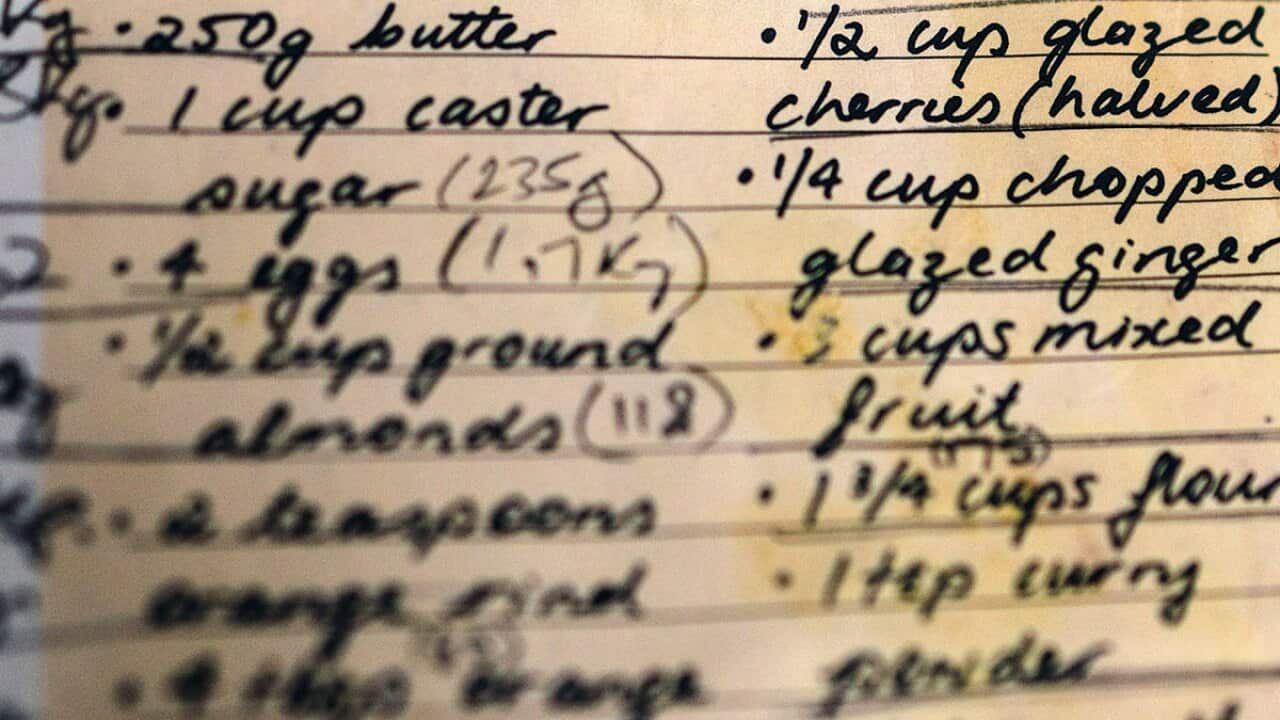 Kg • 250g butter
• 1 cup caster
sugar (235g)
2 • 4 eggs (1.7Kg)
• 1/2 cup ground
almonds (118)
• 2 teaspoons
orange rind
• 4 tbsp orange
• 1/2 cup glazed
cherries (halved)
• 1/4 cup chopped
glazed ginger
• 3 cups mixed
fruit
(175)
• 1 3/4 cups flour
• 1 tsp curry
powder